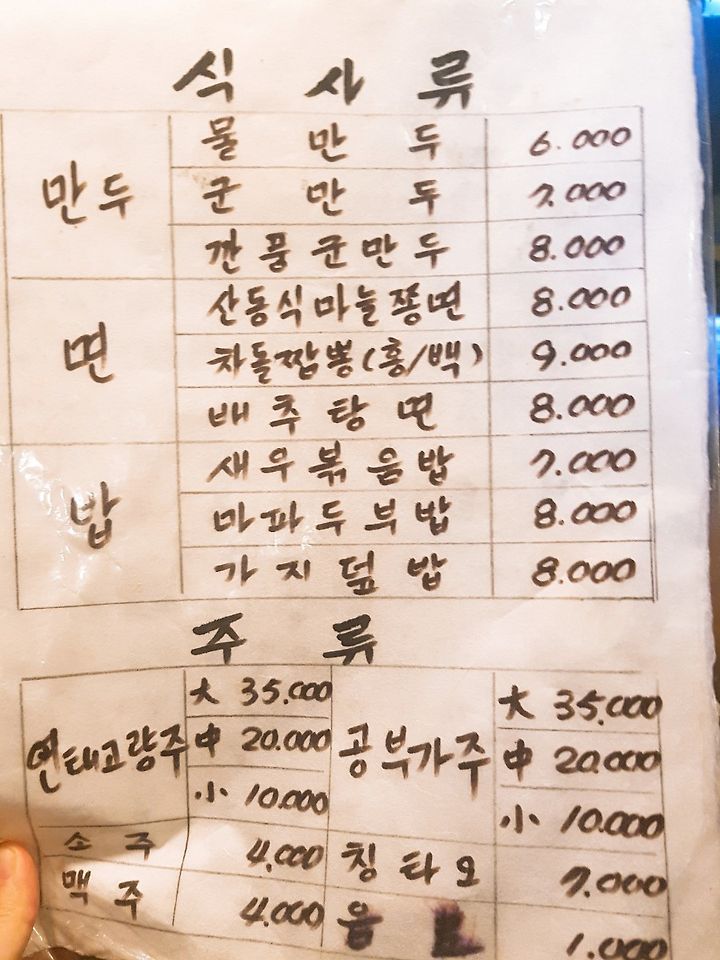 식사류
만두
물만두 6.000
군만두 7.000
깐풍군만두 8.000
면
산동식마늘쫑면 8.000
차돌짬뽕(홍/백) 9.000
배추탕면 8.000
밥
새우볶음밥 7.000
마파두부밥 8.000
가지덮밥 8.000
주류
연태고량주
大 35.000
中 20.000
小 10.000
공부가주
大 35.000
中 20.000
小 10.000
소주 4.000
칭타오 7.000
맥주 4.000
음 1.000